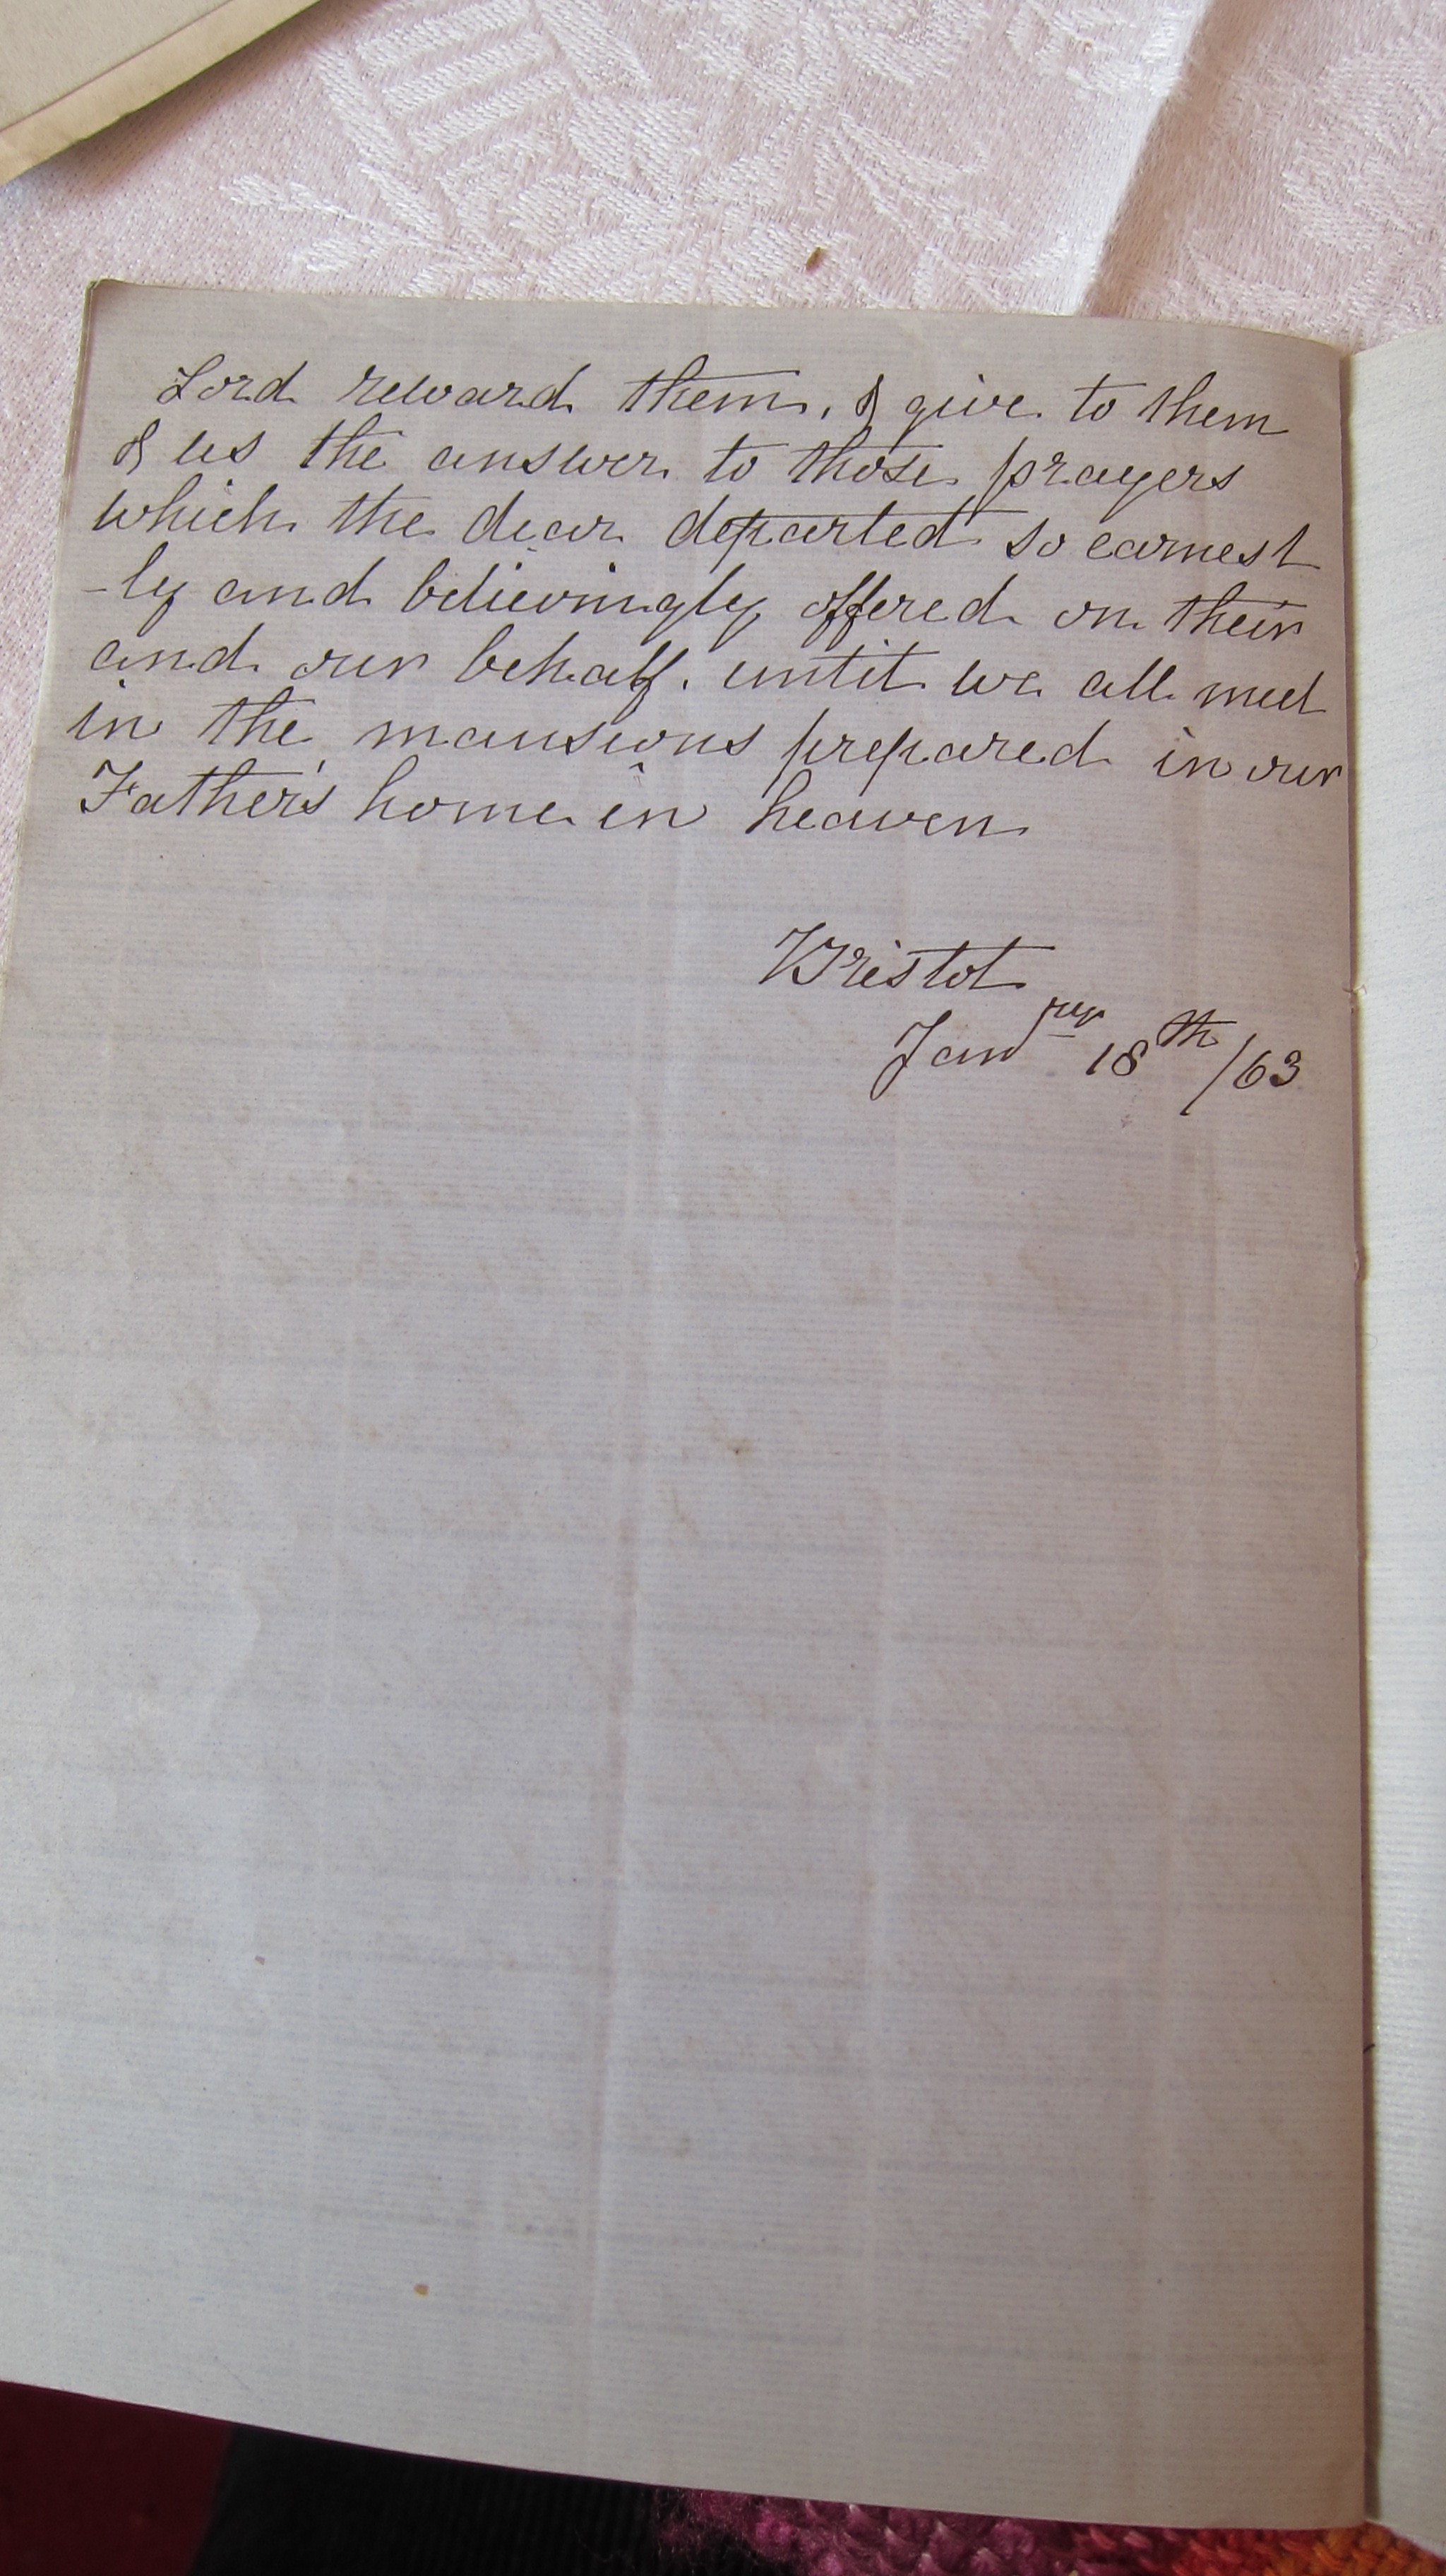 Lord reward them, & give to them
& us the answer to those prayers
which the dear departed so earnest
-ly and believingly offered on their
and our behalf. until we all meet
in the mansions prepared in our
Father's home in heaven
Bristol
Jan^ry 18^th /63